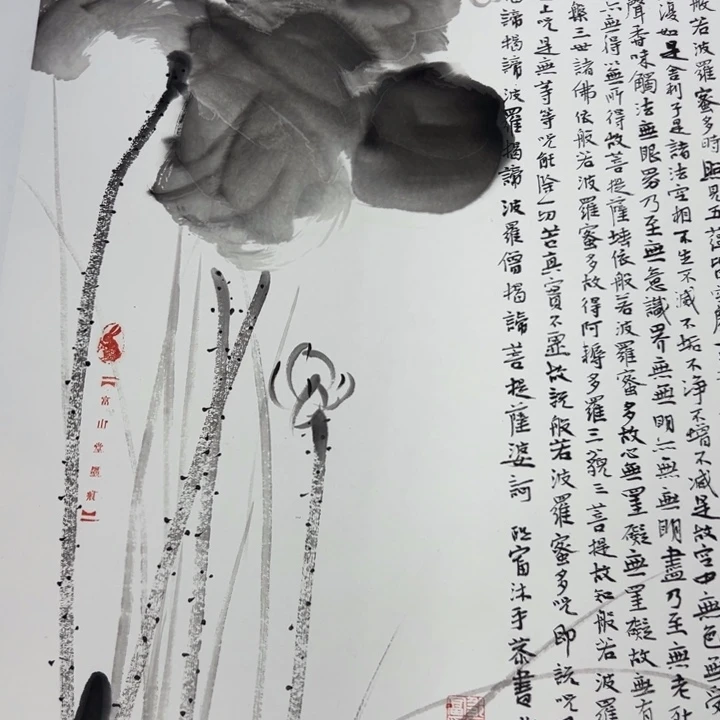 般若波羅蜜多時照見五蘊皆空度
復如是舍利子是諸法空相不生不滅不垢不淨不增不減是故空中無色無受
聲香味觸法無眼界乃至無意識界無無明亦無無明盡乃至無老死
無得以無所得故菩提薩埵依般若波羅蜜多故心無罣礙無罣礙故無有
槃三世諸佛依般若波羅蜜多故得阿耨多羅三藐三菩提故知般若波羅
上呪是無等等呪能除一切苦真實不虛故說般若波羅蜜多呪即說呪
諦揭諦波羅揭諦波羅僧揭諦菩提薩婆訶 沐手恭書
【富山堂墨痕】